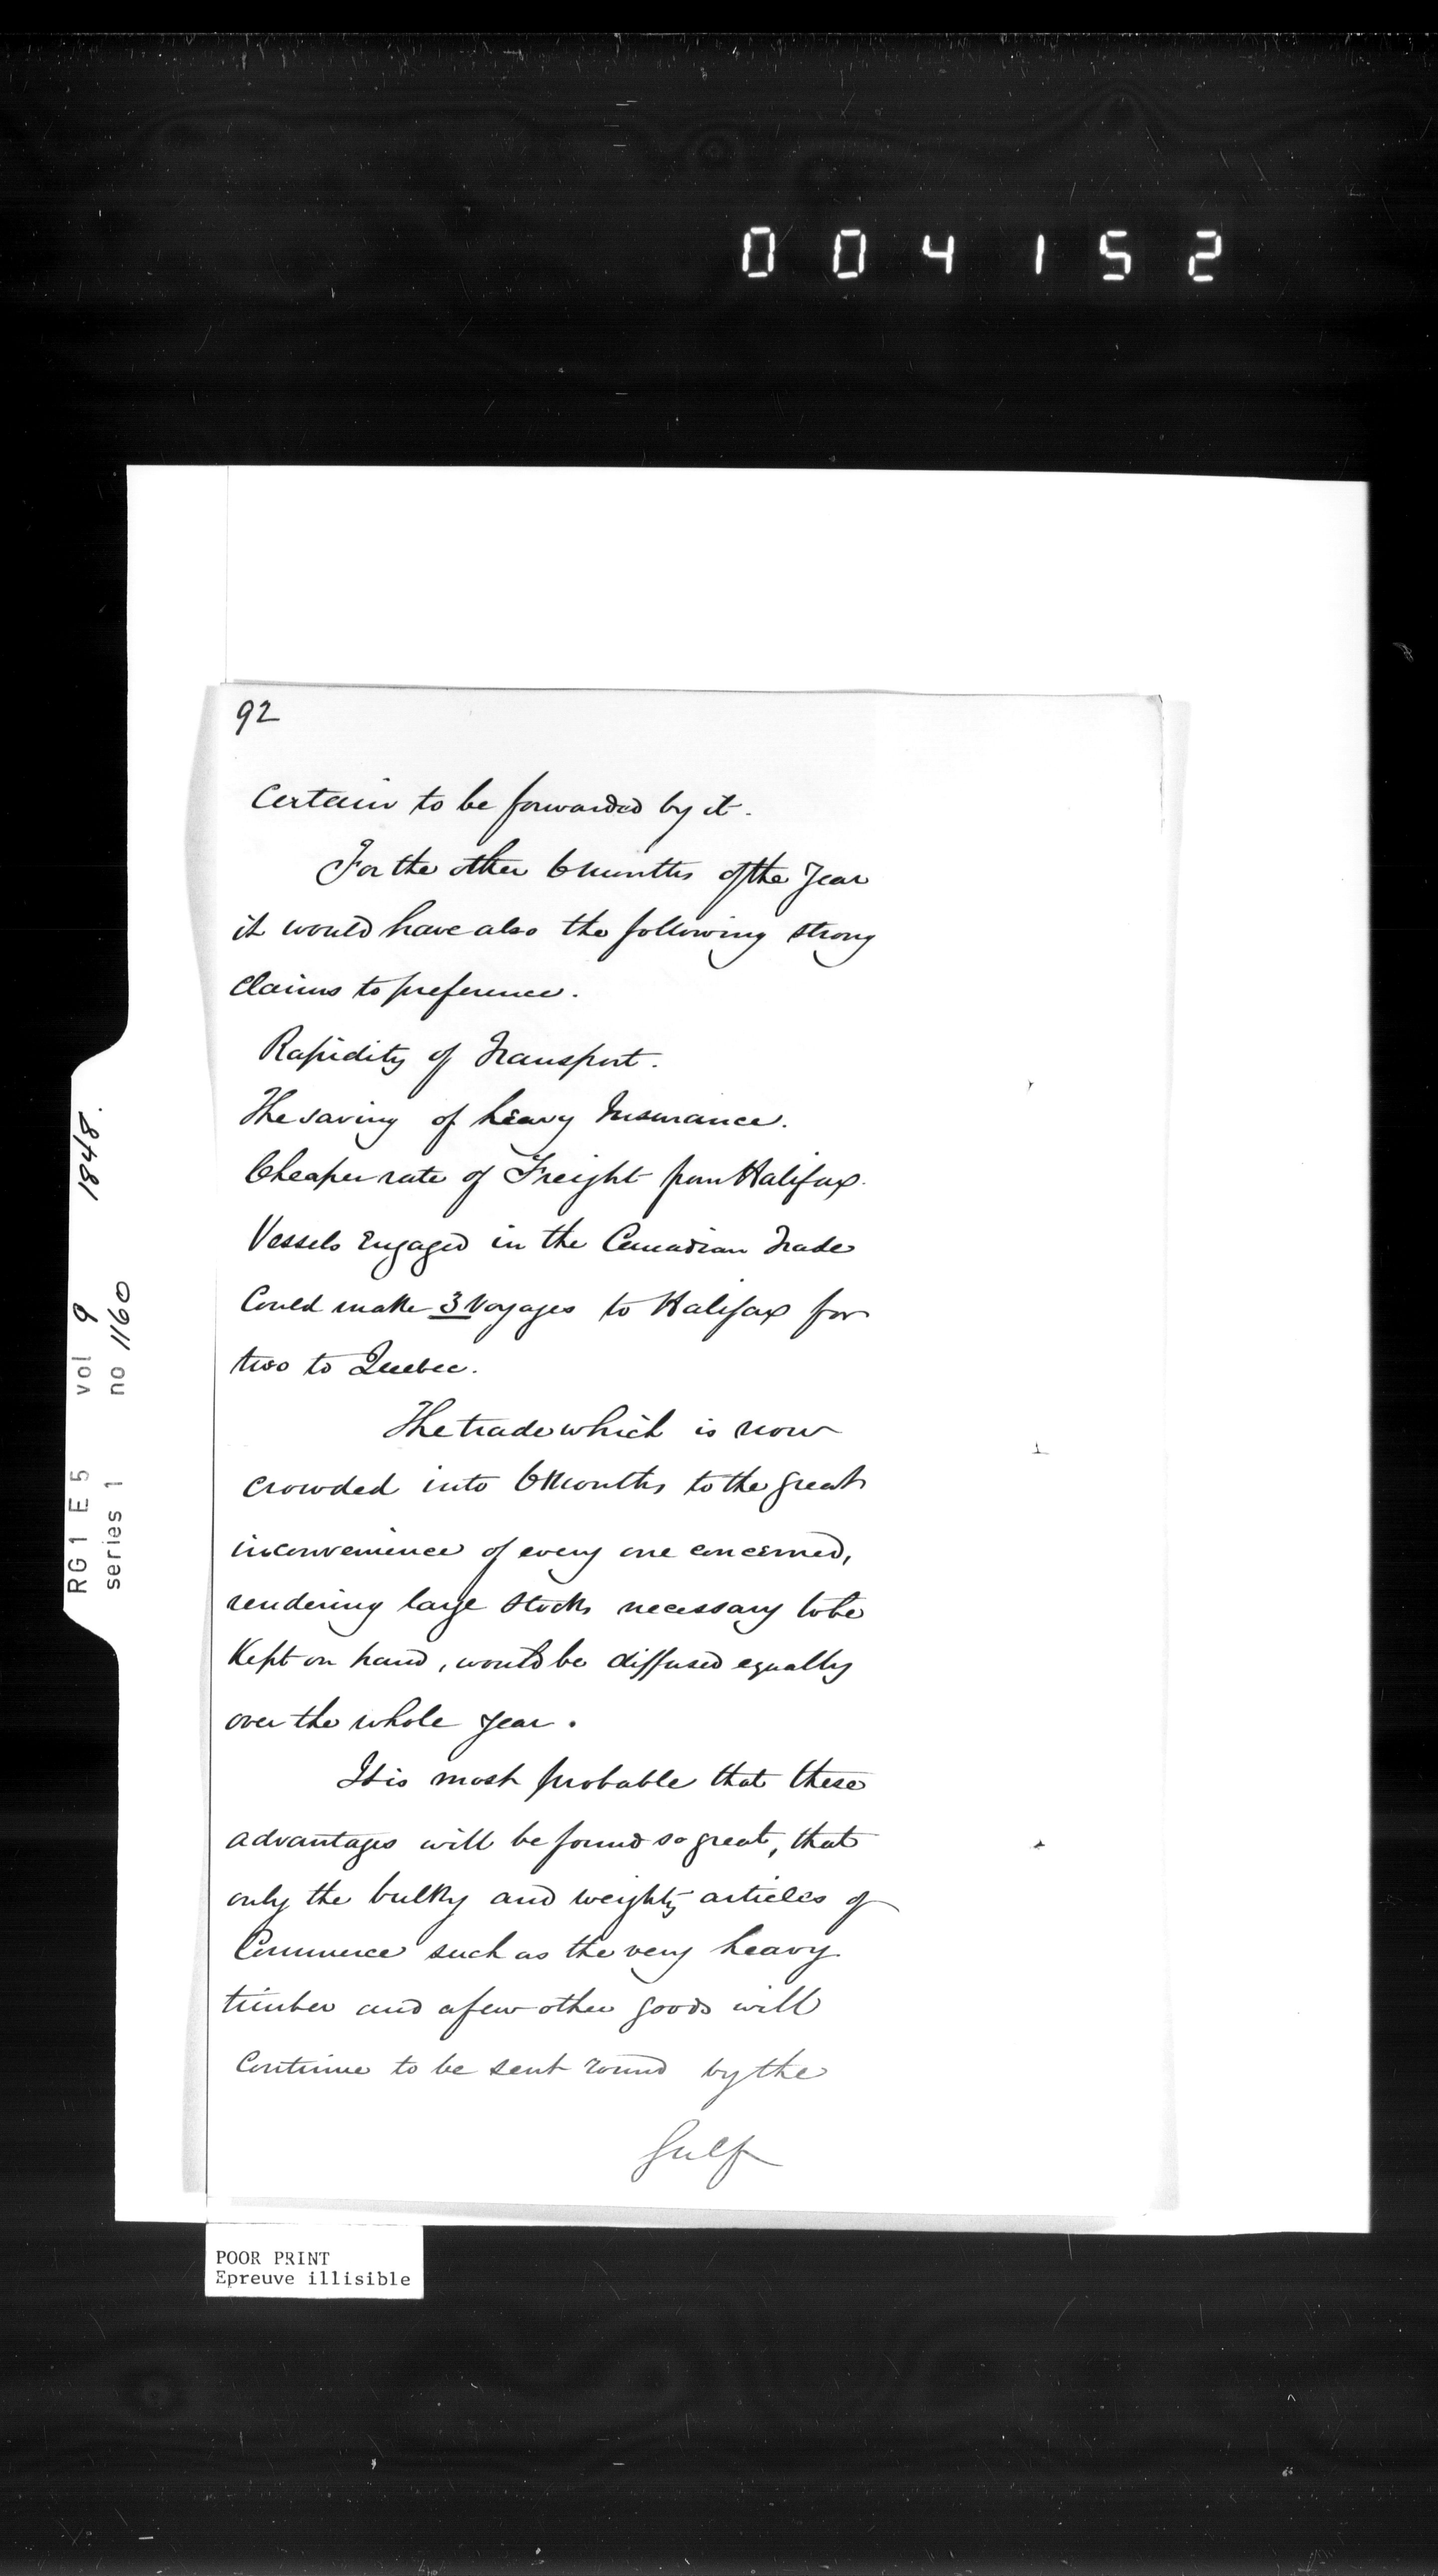 004152
92
Certain to be forwarded by it.
For the other 6 months of the Year
it would have also the following strong
Claims to preference.
Rapidity of Transport.
The saving of heavy Insurance.
Cheaper rate of Freight from Halifax.
Vessels Engaged in the Canadian Trade
Could make 3 Voyages to Halifax for
two to Quebec.
The trade which is now
crowded into 6 Months to the great
inconvenience of every one concerned,
rendering large Stocks necessary to be
Kept on hand, would be diffused equally
over the whole Year.
It is most probable that these
advantages will be found so great, that
only the bulky and weighty articles of
Commerce such as the very heavy
timber and a few other goods will
Continue to be sent round by the
Gulf
RG 1 E 5 vol 9 1848.
series 1 no 1160
POOR PRINT
Epreuve illisible